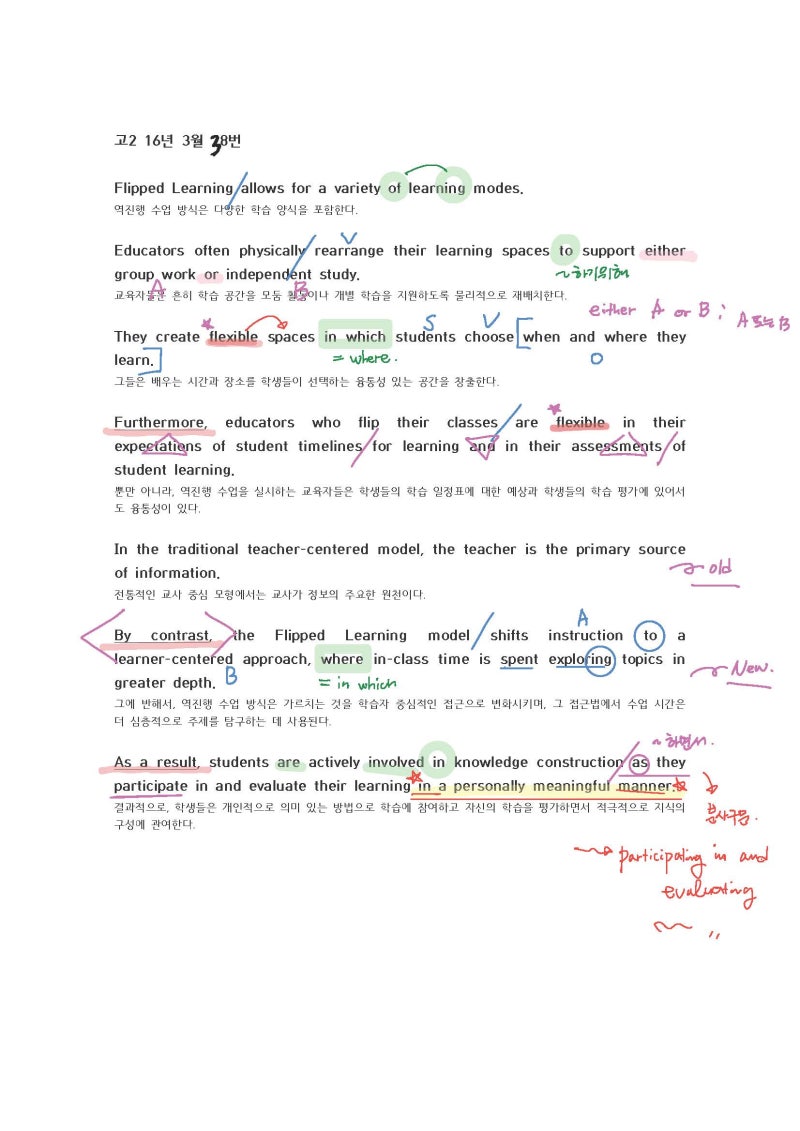 고2 16년 3월 38번
Flipped Learning allows for a variety of learning modes.
역진행 수업 방식은 다양한 학습 양식을 포함한다.
V
Educators often physically rearrange their learning spaces to support either
group work or independent study.
~하기위해
A B
교육자들은 흔히 학습 공간을 모둠 활동이나 개별 학습을 지원하도록 물리적으로 재배치한다.
either A or B : A 또는 B
S V
They create flexible spaces in which students choose [when and where they
learn.]
= where. O
그들은 배우는 시간과 장소를 학생들이 선택하는 융통성 있는 공간을 창출한다.
Furthermore, educators who flip their classes are flexible in their
expectations of student timelines for learning and in their assessments of
student learning.
뿐만 아니라, 역진행 수업을 실시하는 교육자들은 학생들의 학습 일정표에 대한 예상과 학생들의 학습 평가에 있어서
도 융통성이 있다.
In the traditional teacher-centered model, the teacher is the primary source
of information.
old
전통적인 교사 중심 모형에서는 교사가 정보의 주요한 원천이다.
A
By contrast, the Flipped Learning model shifts instruction to a
learner-centered approach, where in-class time is spent exploring topics in
greater depth.
B = in which
New.
그에 반해서, 역진행 수업 방식은 가르치는 것을 학습자 중심적인 접근으로 변화시키며, 그 접근법에서 수업 시간은
더 심층적으로 주제를 탐구하는 데 사용된다.
~하면서.
As a result, students are actively involved in knowledge construction as they
participate in and evaluate their learning in a personally meaningful manner.
결과적으로, 학생들은 개인적으로 의미 있는 방법으로 학습에 참여하고 자신의 학습을 평가하면서 적극적으로 지식의
구성에 관여한다.
분사구문.
participating in and
evaluating
~ "